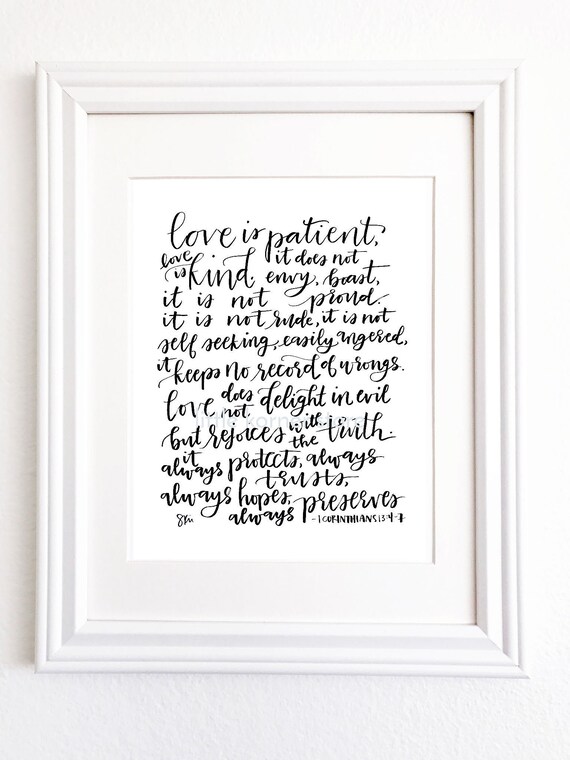 love is patient,
love is kind, it does not
envy, boast,
it is not proud.
it is not rude, it is not
self seeking, easily angered,
it keeps no record of wrongs.
love does not delight in evil
but rejoices with the truth.
it always protects, always
trusts,
always hopes,
always preserves
-1 CORINTHIANS 13:4-7